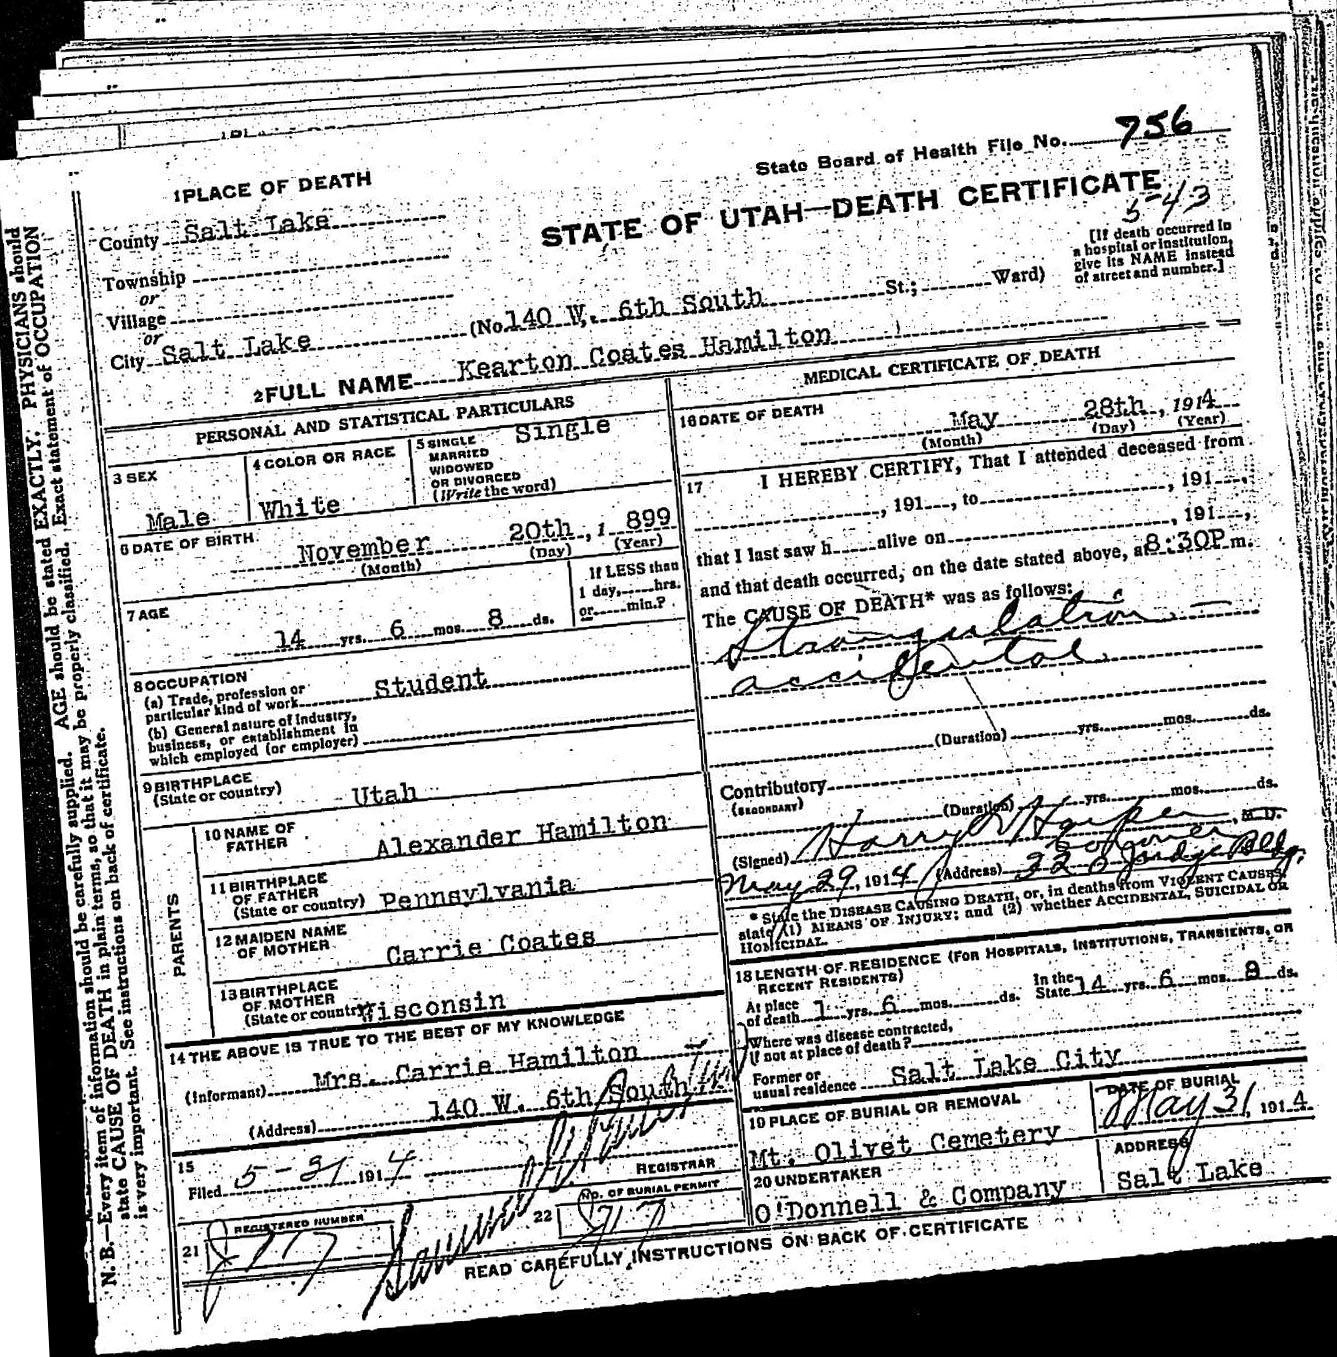 State Board of Health File No. 756
1 PLACE OF DEATH
STATE OF UTAH—DEATH CERTIFICATE
5-43
County Salt Lake
Township
or
Village
or
City Salt Lake (No. 140 W. 6th South St.; Ward)
[If death occurred in
a hospital or institution,
give its NAME instead
of street and number.]
2 FULL NAME Kearton Coates Hamilton
PERSONAL AND STATISTICAL PARTICULARS
3 SEX
Male
4 COLOR OR RACE
White
5 SINGLE
MARRIED
WIDOWED
OR DIVORCED
(Write the word)
Single
6 DATE OF BIRTH
November 20th, 1 899
(Month) (Day) (Year)
7 AGE
14 yrs. 6 mos. 8 ds.
If LESS than
1 day, hrs.
or min.?
8 OCCUPATION
(a) Trade, profession or
particular kind of work Student
(b) General nature of Industry,
business, or establishment in
which employed (or employer)
9 BIRTHPLACE
(State or country) Utah
PARENTS
10 NAME OF
FATHER Alexander Hamilton
11 BIRTHPLACE
OF FATHER
(State or country) Pennsylvania
12 MAIDEN NAME
OF MOTHER Carrie Coates
13 BIRTHPLACE
OF MOTHER
(State or country) Wisconsin
14 THE ABOVE IS TRUE TO THE BEST OF MY KNOWLEDGE
(Informant) Mrs. Carrie Hamilton
(Address) 140 W. 6th South
15
Filed 5-31 1914
REGISTRAR
21 REGISTERED NUMBER
22 NO. OF BURIAL PERMIT
MEDICAL CERTIFICATE OF DEATH
16 DATE OF DEATH
May 28th, 1914
(Month) (Day) (Year)
17 I HEREBY CERTIFY, That I attended deceased from
, 191 , to , 191 ,
that I last saw h alive on , 191 ,
and that death occurred, on the date stated above, at 8:30P m.
The CAUSE OF DEATH* was as follows:
Strangulation —
accidental
(Duration) yrs. mos. ds.
Contributory
(SECONDARY)
(Duration) yrs. mos. ds.
(Signed) Harry S Harper, M. D.
Coroner
May 29, 1914 (Address) 325 Judge Bldg.
* State the DISEASE CAUSING DEATH, or, in deaths from VIOLENT CAUSES,
state (1) MEANS OF INJURY; and (2) whether ACCIDENTAL, SUICIDAL OR
HOMICIDAL.
18 LENGTH OF RESIDENCE (FOR HOSPITALS, INSTITUTIONS, TRANSIENTS, OR
RECENT RESIDENTS)
At place
of death 1 yrs. 6 mos. ds.
In the
State 14 yrs. 6 mos. 8 ds.
Where was disease contracted,
if not at place of death?
Former or
usual residence Salt Lake City
19 PLACE OF BURIAL OR REMOVAL
Mt. Olivet Cemetery
DATE OF BURIAL
May 31, 1914
20 UNDERTAKER
O'Donnell & Company
ADDRESS
Salt Lake
READ CAREFULLY INSTRUCTIONS ON BACK OF CERTIFICATE
N. B.—Every item of information should be carefully supplied. AGE should be stated EXACTLY. PHYSICIANS should
state CAUSE OF DEATH in plain terms, so that it may be properly classified. Exact statement of OCCUPATION
is very important. See instructions on back of certificate.